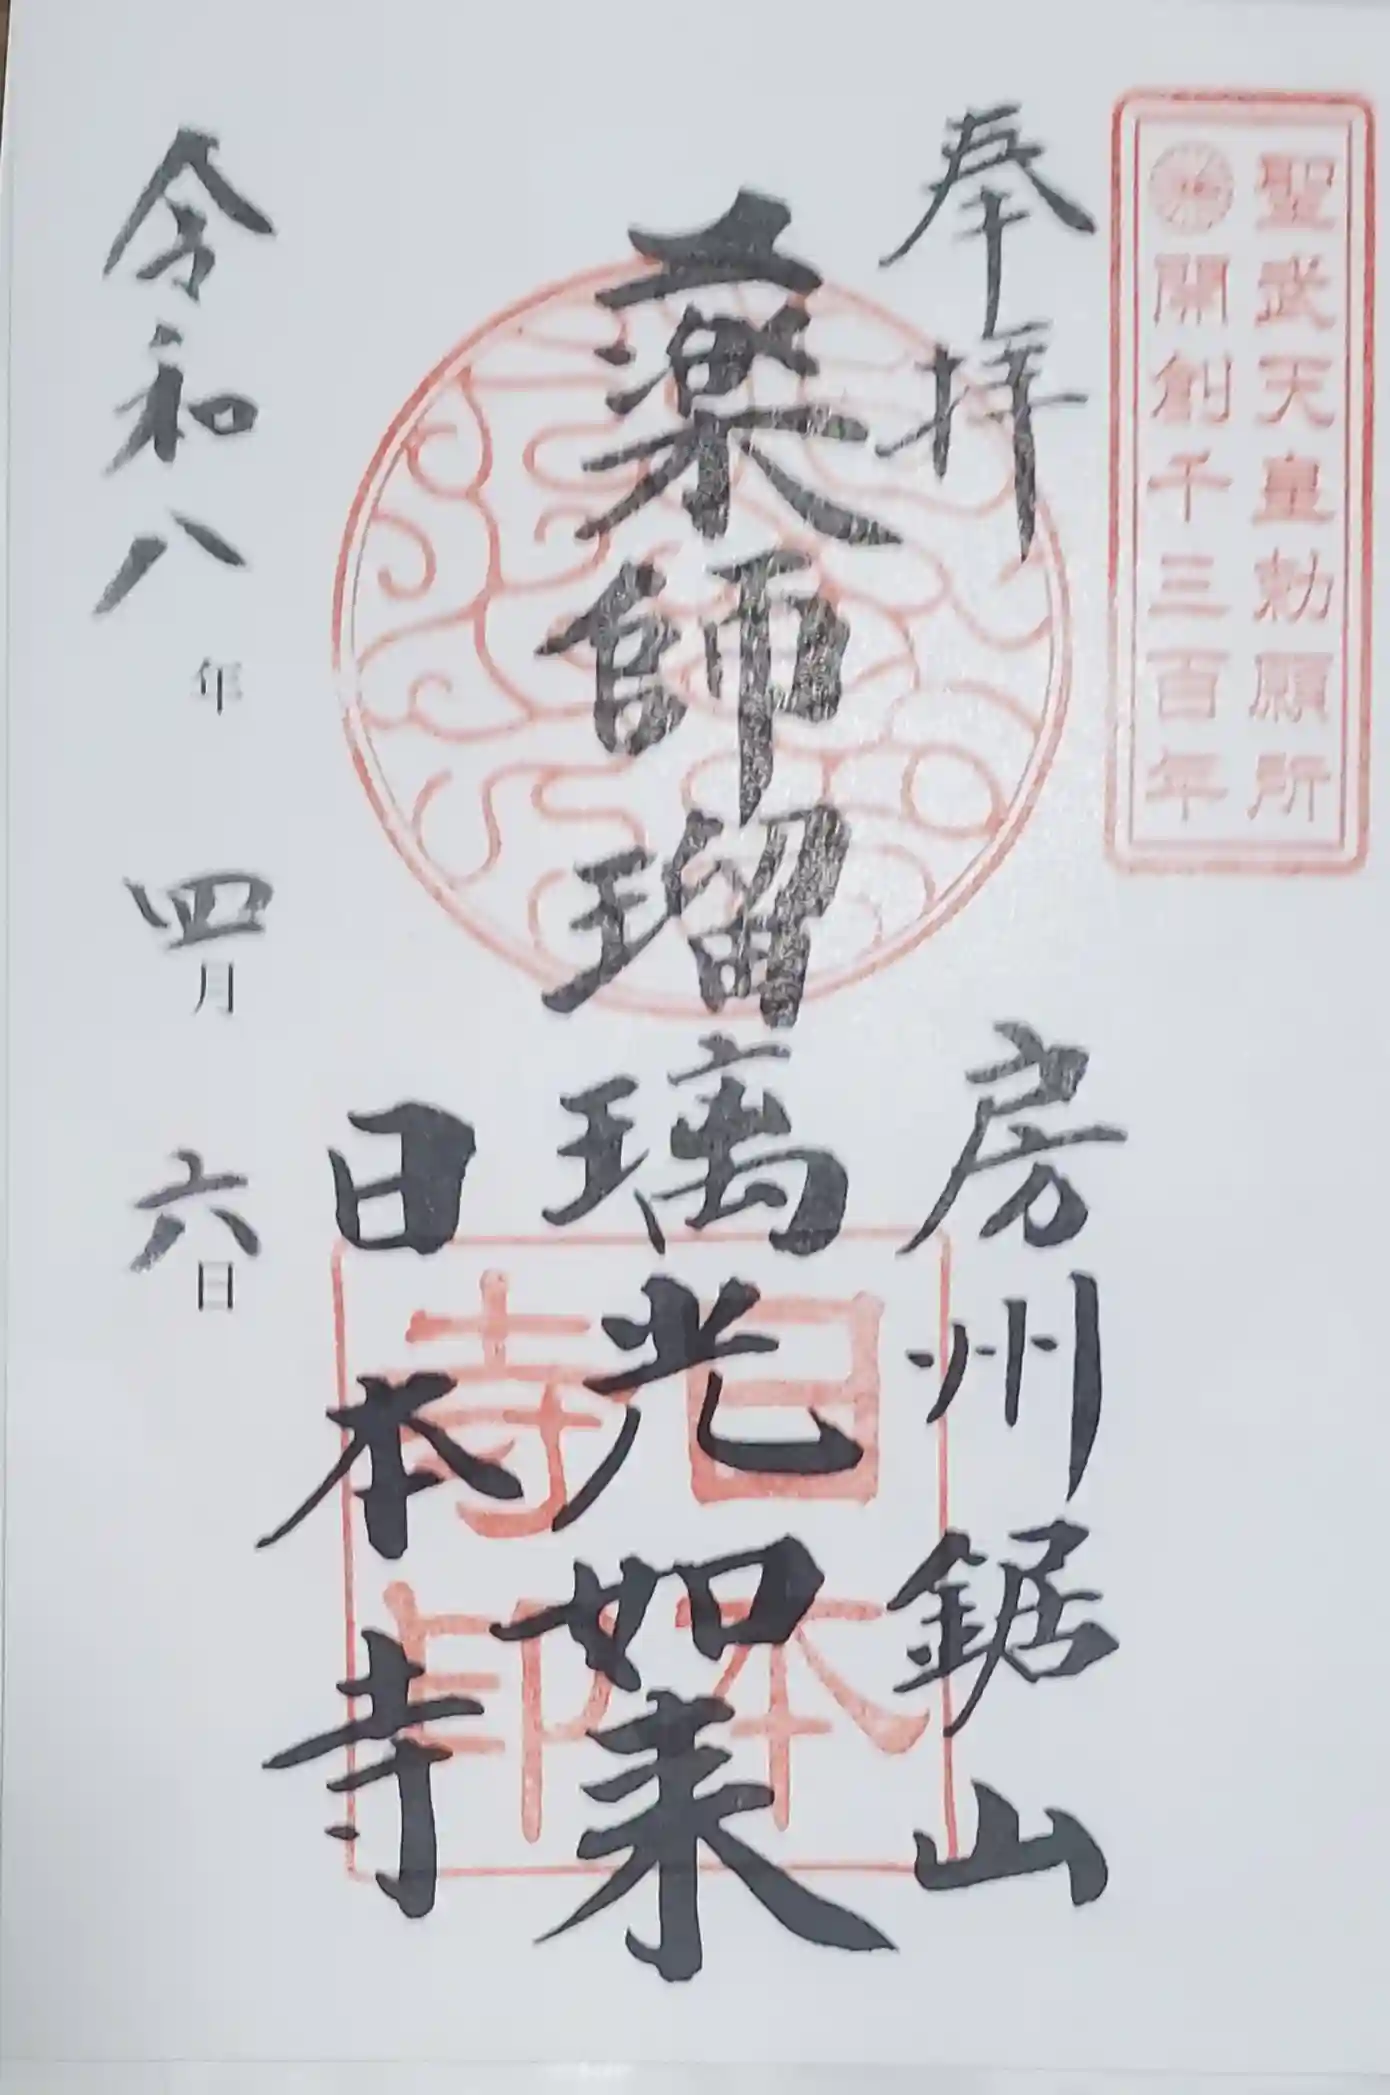 聖武天皇勅願所
開創千三百年
奉拝
房州鋸山
薬師瑠璃光如来
日本寺
日本寺印
令和八年四月六日